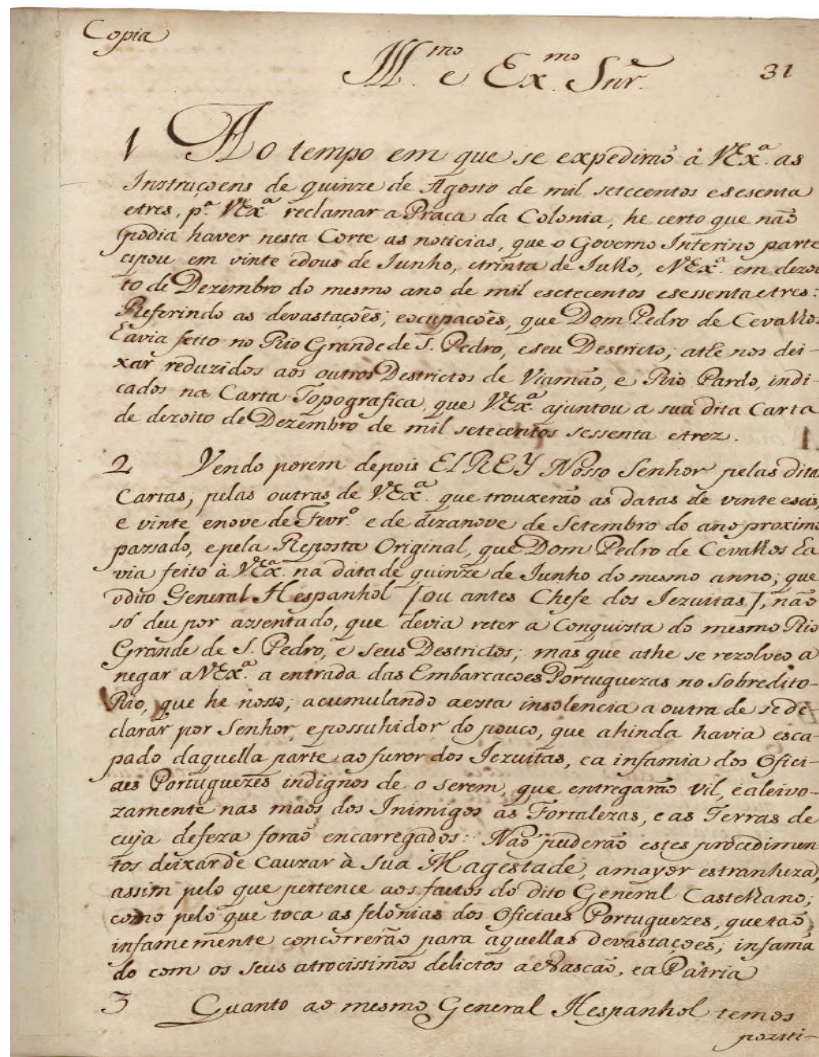 Copia
Ill.mo e Ex.mo Snr.
31
1 Ao tempo em que se expedirão á VExª. as
Instruçoens de quinze de Agosto de mil setecentos esesenta
etres, pª. VExª. reclamar a Praca da Colonia, he certo que não
podia haver nesta Corte as noticias, que o Governo Interino parte
cipou em vinte edous de Iunho, etrinta de Iulho, eVExª. em dezoi
to de Dezembro do mesmo ano de mil esetecentos esessenta etres:
Referindo as devastaçoẽs, eocupacoẽs, que Dom Pedro de Cevalhos
havia feito no Rio Grande de S. Pedro, eseu Destricto, athe nos dei-
xar reduzidos aos outros Destrictos de Viamão, e Rio Pardo, indi-
cados na Carta Topografica, que VExª. ajuntou a sua dita Carta
de dezoito de Dezembro de mil setecentos sessenta etrez.
2 Vendo porem depois ELREY Nosso Senhor pelas ditas
Cartas, pelas outras de VExª. que trouxerão as datas de vinte eseis,
e vinte enove de Fevrº. e de dizanove de Setembro do ano proximo
passado, epela Reposta Original, que Dom Pedro de Cevalhos ha
via feito à VExª. na data de quinze de Junho do mesmo anno; que
odito General Hespanhol [ou antes Chefe dos Iezuitas], não
só deu por assentado, que devia reter a Conquista do mesmo Rio
Grande de S. Pedro, e seus Destrictos; mas que athe se rezolveo a
negar aVExª. a entrada das Embarcacoes Portuguezas no Sobredito-
Rio, que he nosso; acumulando aesta insolencia a outra de se de-
clarar por Senhor, epossuhidor do pouco, que ahinda havia esca-
pado daquella parte ao furor dos Iezuitas, ea infamia dos Ofici-
aes Portuguezes indignos de o serem, que entregarão vil, ealeivo-
zamente nas mãos dos Inimigos as Fortalezas, eas Terras de
cuja defeza forão encarregados: Não puderão estes procedimen
tos deixar de Cauzar à Sua Magestade, amayor estranheza,
assim pelo que pertence aos factos do dito General Castelhano;
como pelo que toca as felonias dos Oficiaes Portuguezes, que tão
infamemente concorrerão para aquellas devastaçoes; infamã
do com os seus atrocissimos delictos aNascão, ea Patria
3 Quanto ao mesmo General Hespanhol temos
poziti-